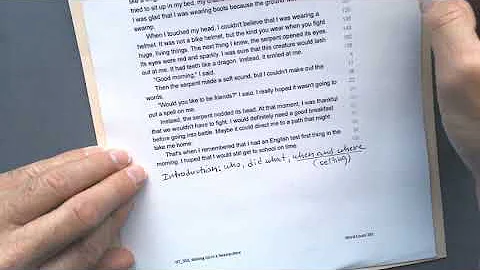 tried to sit up in my bed, my
I was glad that I was wearing boots because the ground
swamp.
When I touched my head, I couldn't believe that I was wearing a
helmet. It was not a bike helmet, but the kind you wear when you fight
huge, living things. The next thing I knew, the serpent opened its eyes.
Its eyes were red and sparkly. I was sure that this creature would lash
out at me. It had teeth like a dragon. Instead, it smiled at me.
"Good morning," I said.
Then the serpent made a soft sound, but I couldn't make out the
words.
"Would you like to be friends?" I said. I really hoped it wasn't going to
put a spell on me.
Instead, the serpent nodded its head. At that moment, I was thankful
that we wouldn't have to fight. I would definitely need a good breakfast
before going into battle. Maybe it could direct me to a path that might
take me home.
That's when I remembered that I had an English test first thing in the
morning. I hoped that I would still get to school on time.
Introduction: who, did what, when and where
(setting)
Word Count